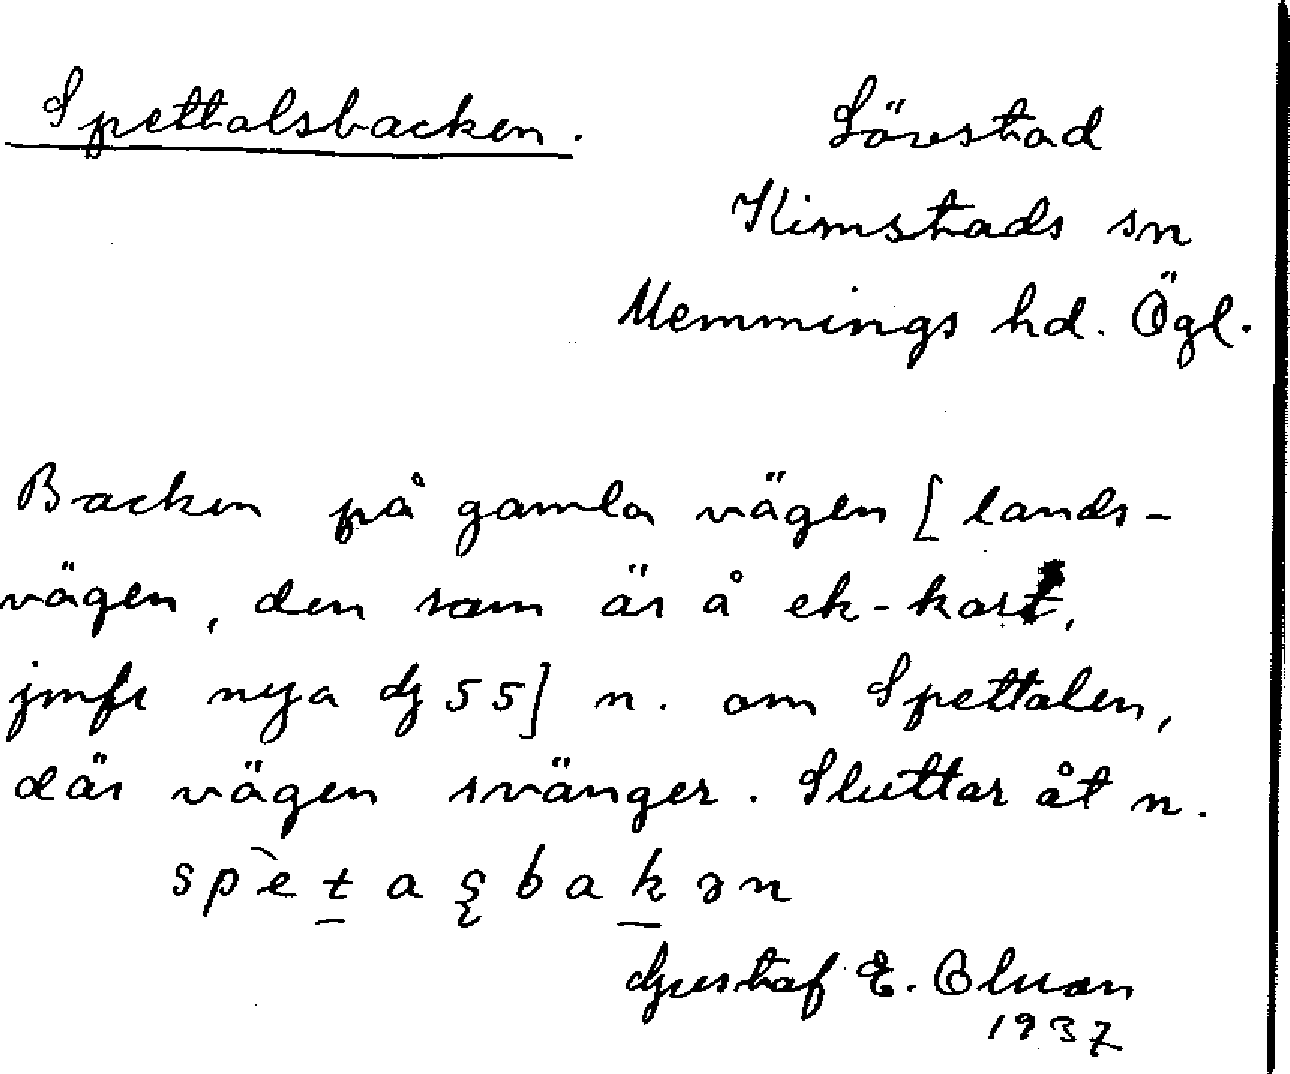 Spettalsbacken.
Lövstad
Kimstads sn
Memmings hd. Ögl.
Backen på gamla vägen [lands-
vägen, den som är å ek-kart,
jmfr nya G 55] n. om Spettalen,
där vägen svänger. Sluttar åt n.
Gustaf E.
1937